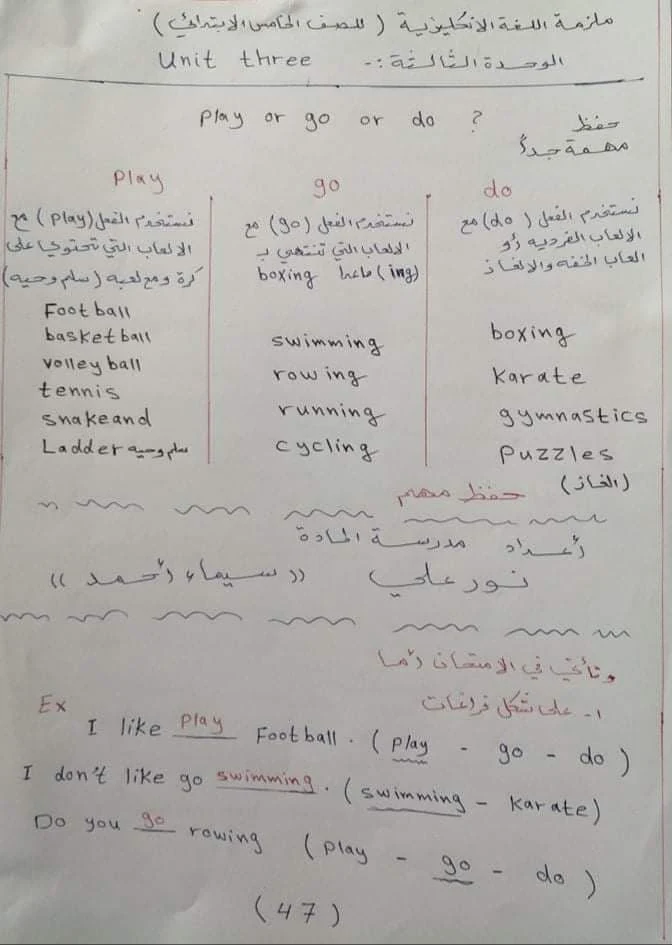 ملزمة اللغة الانكليزية ( للصف الخامس الابتدائي )
الوحدة الثالثة :- Unit three
Play or go or do ?
حفظ
مهمة جداً
Play
نستخدم الفعل (play) مع
الالعاب التي تحتوي على
كرة ومع لعبة (سلم وحيه)
Football
basketball
volleyball
tennis
snakeand
Ladder سلم وحيه
go
نستخدم الفعل (go) مع
الالعاب التي تنتهي بـ
(ing) ماعدا boxing
swimming
rowing
running
cycling
do
نستخدم الفعل (do) مع
الالعاب الفرديه أو
العاب الخفه والالغاز
boxing
Karate
gymnastics
Puzzles
(الغاز)
حفظ مهم
أعداد مدرسة المادة
نور علي (( سيماء أحمد ))
وتأتي في الامتحان أما
١- على شكل فراغات
Ex
I like play Football . ( play - go - do )
I don't like go swimming . ( swimming - Karate )
Do you go rowing ( play - go - do )
( 47 )